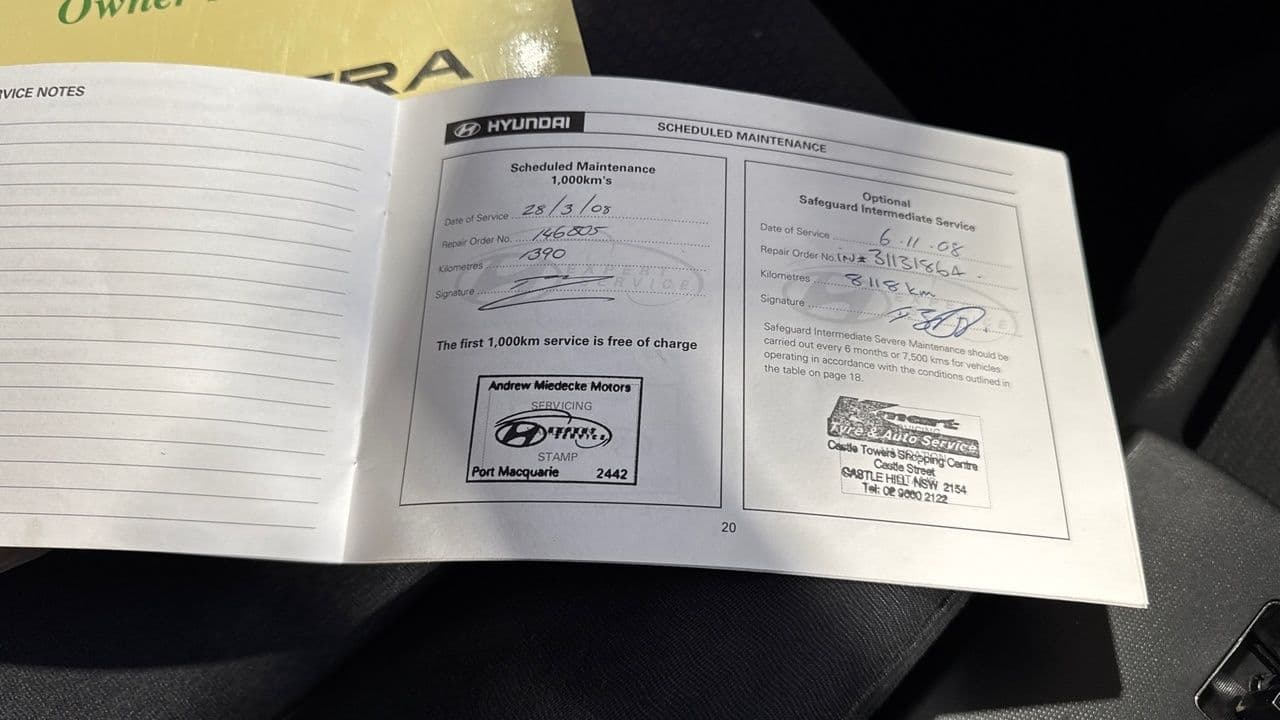 Owner
RA
RVICE NOTES
HYUNDAI
SCHEDULED MAINTENANCE
Scheduled Maintenance
1,000km's
Date of Service 28/3/08
Repair Order No. 146805
Kilometres 1390
Signature
EXPERT
SERVICE
The first 1,000km service is free of charge
Andrew Miedecke Motors
SERVICING
EXPERT
SERVICE
STAMP
Port Macquarie 2442
Optional
Safeguard Intermediate Service
Date of Service 6.11.08
Repair Order No. IN# 3113186A
Kilometres 8118 km
Signature
Safeguard Intermediate Severe Maintenance should be
carried out every 6 months or 7,500 kms for vehicles
operating in accordance with the conditions outlined in
the table on page 18.
Kmart
Tyre & Auto Service
Castle Towers Shopping Centre
Castle Street
CASTLE HILL NSW 2154
Tel: 02 9680 2122
20